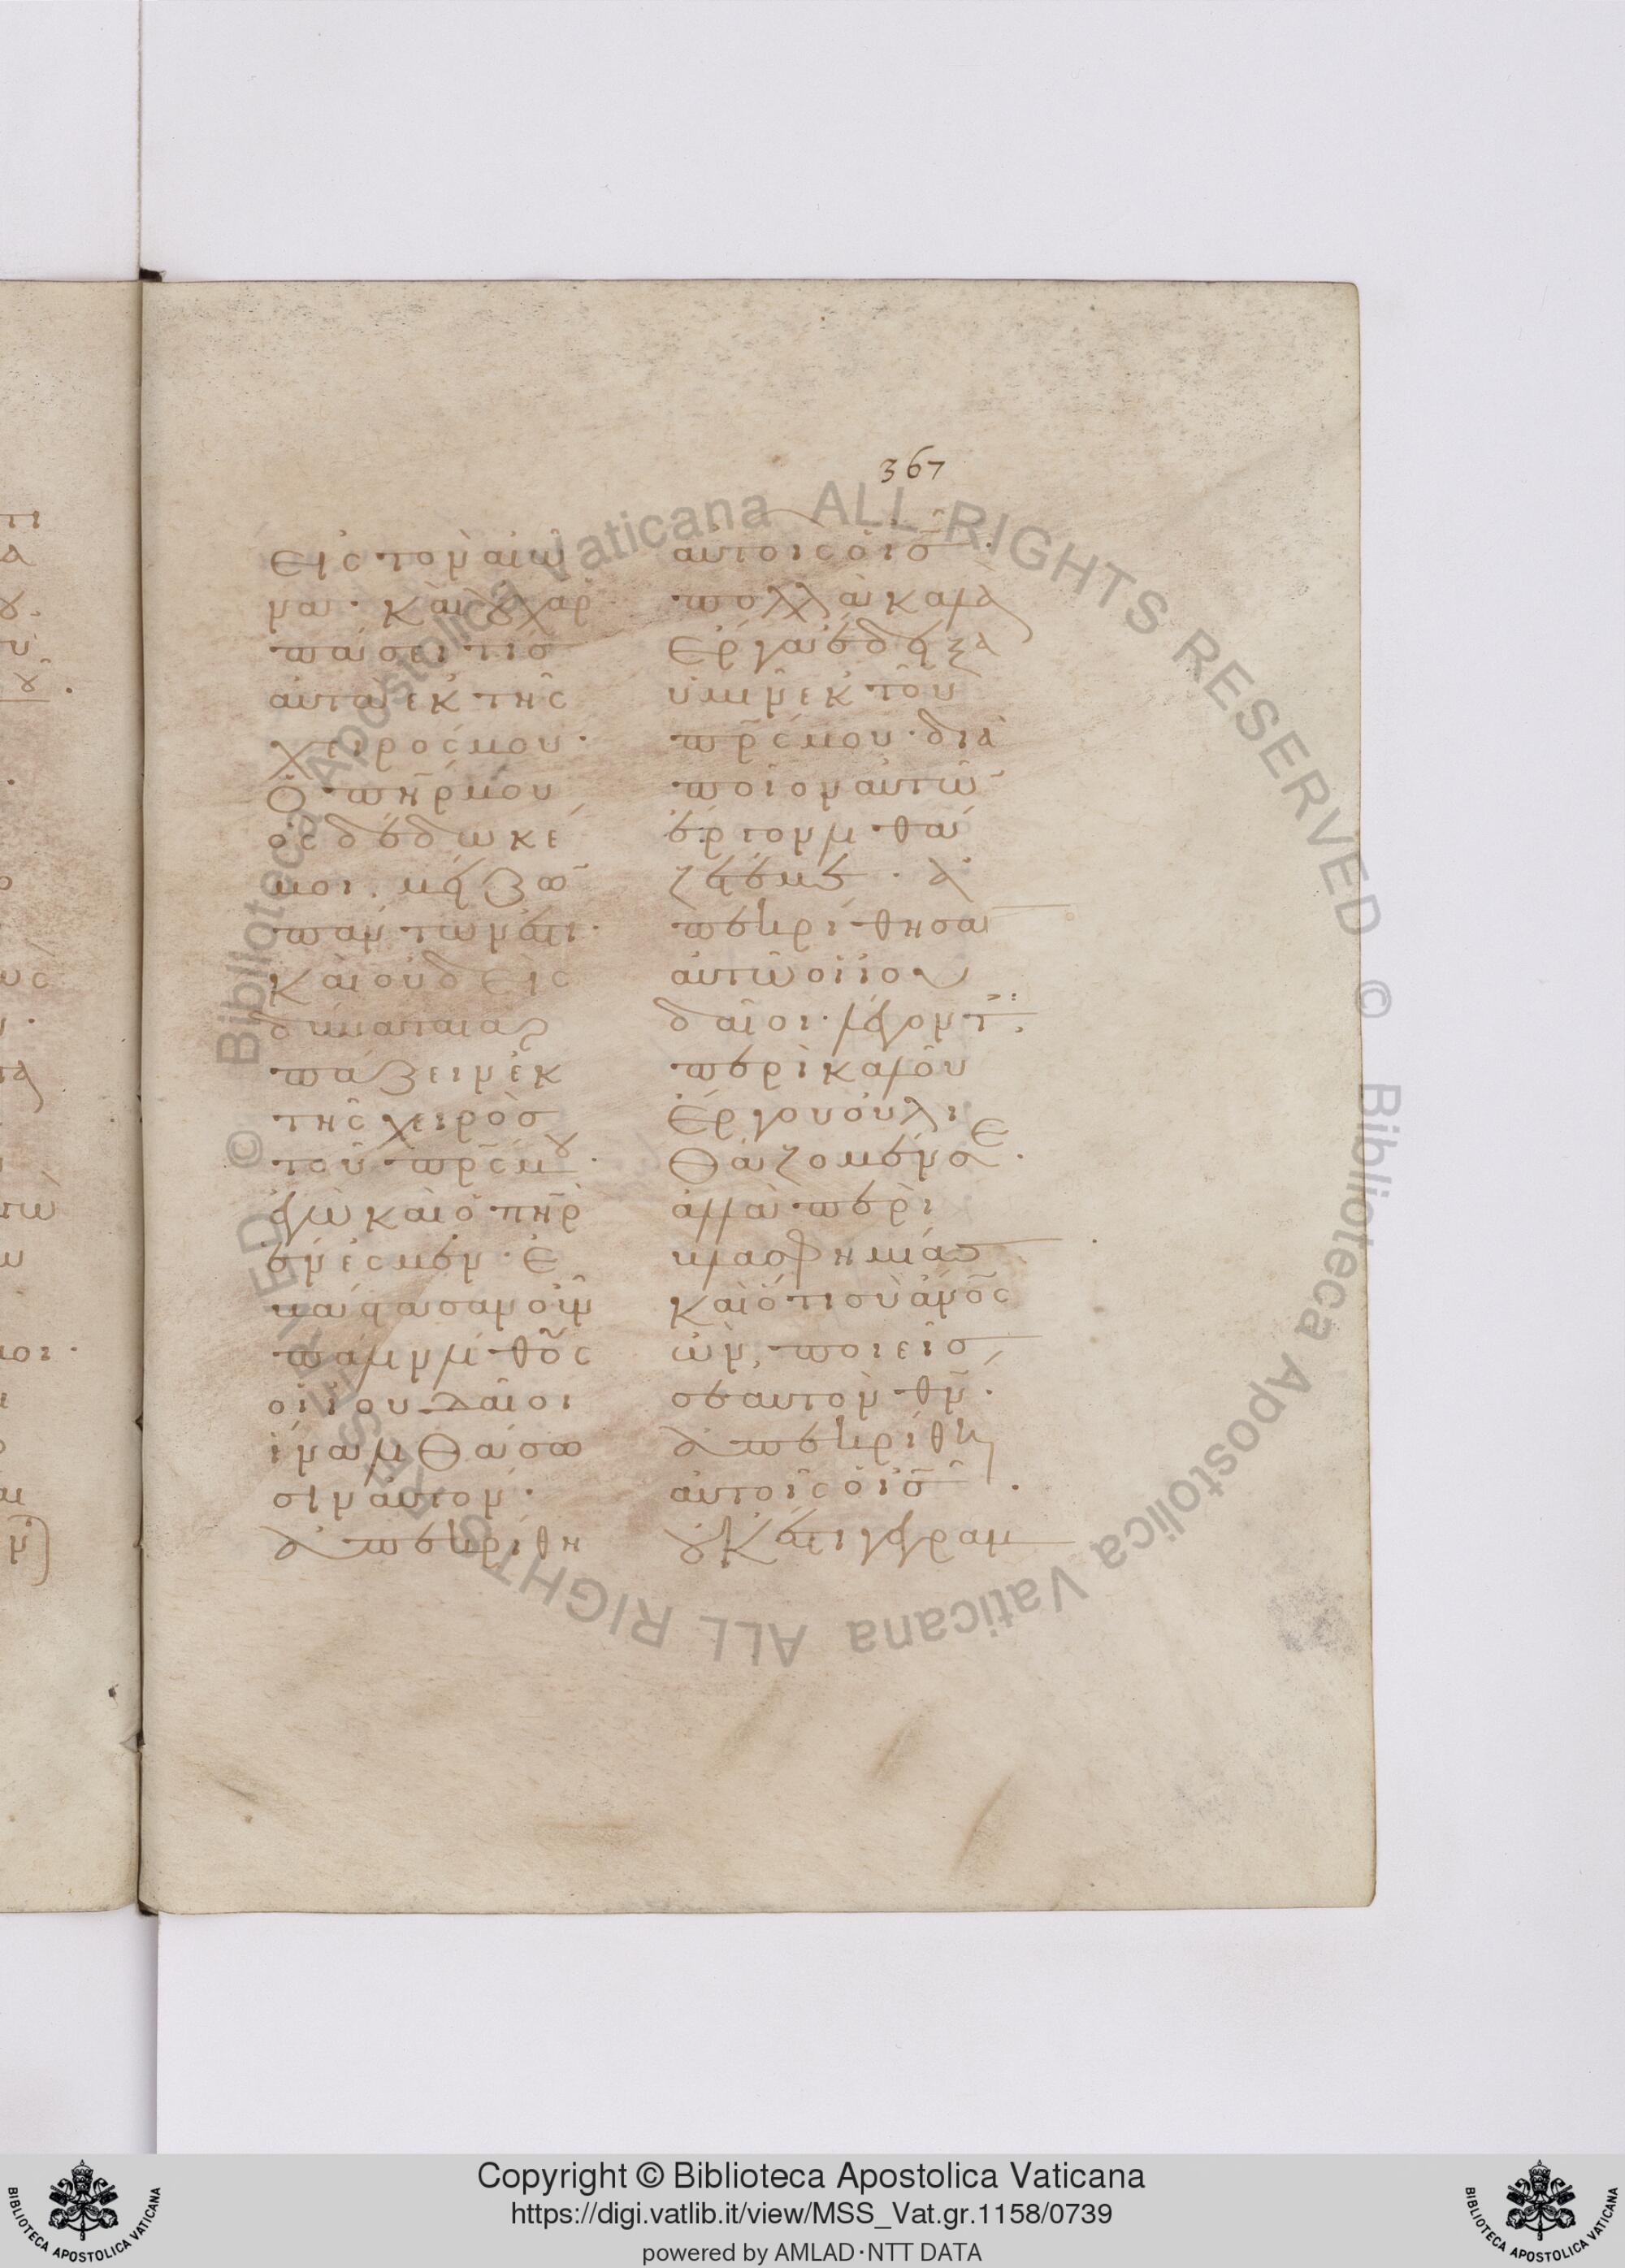 367
εἰς τὸν αἰῶ
να· καὶ οὐχ ἁρ
πάσει τίσ
αὐτὰ ἐκ τῆς
χειρός μου·
Ὁ πη̅ρ μου
ὃς δέδωκέ
μοι. μείζω̅
πάντων ἐστι·
Καὶ οὐδεὶς
δύναται ἁρ
πάζειν ἐκ
τῆς χειρὸσ
τοῦ πρ̅ς μου·
ἐγὼ καὶ ὁ πη̅ρ
ἕν ἐσμεν· ἐ
βάστασαν οὖν
πάλιν λίθους
οἱ ἰουδαῖοι
ἵνα λιθάσω
σιν αὐτόν·
ἀπεκρίθη
αὐτοῖς ὁ ις̅·
πολλὰ καλὰ
ἔργα ἔδειξα
ὑμῖν ἐκ τοῦ
πρ̅ς μου· διὰ
ποῖον αὐτῶ̅
ἔργον λιθά
ζετέ με· ἀ
πεκρίθησαν
αὐτῶ οἱ ἰου
δαῖοι· λέγοντες:
περὶ καλοῦ
ἔργου οὐ λι
θάζομέν σε·
ἀλλὰ περὶ
βλασφημίασ
καὶ ὅτι σὺ ἄνο̅ς
ὢν, ποιεῖσ
σεαυτὸν θν̅·
ἀπεκρίθη
αὐτοῖς ὁ ις̅·
οὐκ ἔστι γεγραμ
Copyright © Biblioteca Apostolica Vaticana
https://digi.vatlib.it/view/MSS_Vat.gr.1158/0739
powered by AMLAD·NTT DATA
© Biblioteca Apostolica Vaticana ALL RIGHTS RESERVED
© Biblioteca Apostolica Vaticana ALL RIGHTS RESERVED
BIBLIOTECA APOSTOLICA VATICANA
BIBLIOTECA APOSTOLICA VATICANA